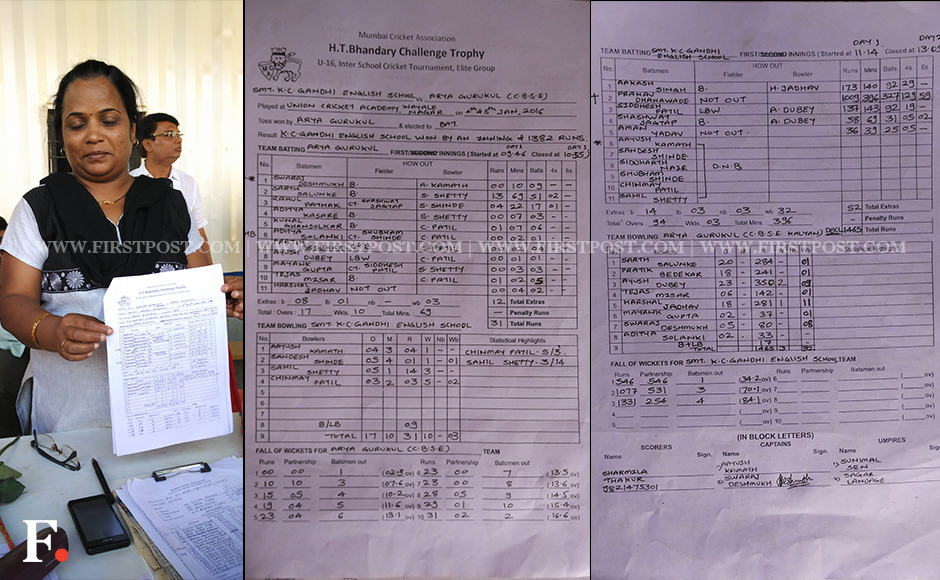 Mumbai Cricket Association
H.T.Bhandary Challenge Trophy
U-16, Inter School Cricket Tournament, Elite Group
SMT. K.C. GANDHI ENGLISH SCHOOL vs ARYA GURUKUL (C.B.S.E)
Played at UNION CRICKET ACADEMY, WAYALE NAGAR on 4th & 5th JAN, 2016
Toss won by ARYA GURUKUL & elected to BAT.
Result K.C. GANDHI ENGLISH SCHOOL WON BY AN INNING & 1382 RUNS.
TEAM BATTING ARYA GURUKUL FIRST/SECOND INNINGS (Started at 09.46 Closed at 10.55)
DAY 1 DAY 1
Batsmen HOW OUT Runs Mins Balls 4s 6s
Fielder Bowler
1 SWARAJ DESHMUKH B. A. KAMATH 00 10 09 - -
2 SARTH SALUNKE B. S. SHETTY 13 69 31 02 -
3 RAHUL PATHAK CT. SHASWAT JAGTAP S. SHINDE 04 22 17 01 -
4 ADITYA KASARE B. S. SHETTY 00 07 03 - -
5 KUNAL GHANSOLKAR B. C. PATIL 01 07 06 - -
6 ADITYA SOLANKI CT. SHUBHAM SHINDE
7 AYUSH DUBEY LBW C. PATIL 00 01 01 - -
8 MAYANK GUPTA CT. SIDDHESH PATIL S. SHETTY 00 03 03 - -
TEJAS MISAR B. C. PATIL 01 02 05 - -
11 HARSHAL JADHAV NOT OUT 00 04 02 - -
Extras : b 08 lb 01 nb - wb 03 12 Total Extras
Total : Overs : 17 Wkts. 10 Mins. 69 31 Total Runs
TEAM BOWLING SMT. K.C. GANDHI ENGLISH SCHOOL
Bowlers O M R W Nb Wb Statistical Highlights
1 AAYUSH KAMATH 04 3 04 1 - - CHINMAY PATIL - 5/3
2 SANDESH SHINDE 05 4 01 1 - 01 SAHIL SHETTY - 3/14
3 SAHIL SHETTY 05 1 14 3 - -
4 CHINMAY PATIL 03 2 03 5 - 02
5
6
7
8 B/LB 09
9 TOTAL 17 10 31 10 - 03
FALL OF WICKETS FOR ARYA GURUKUL (C.B.S.E) TEAM
Runs Partnership Batsmen out Runs Partnership Batsmen out
1 00 00 1 ov) 6 23 00 7 (13.5 ov)
2 10 10 3 (07.6 ov) 7 23 00 8 (13.6 ov)
3 15 05 4 (10.2 ov) 8 28 05 9 (14.5 ov)
4 19 04 5 (11.6 ov) 9 29 01 10 (15.4 ov)
5 23 04 6 (13.1 ov) 10 31 02 2 (16.6 ov)
DAY 1 DAY 2
TEAM BATTING SMT. K.C. GANDHI ENGLISH SCHOOL FIRST/SECOND INNINGS (Started at 11.14 Closed at
Batsmen HOW OUT Runs Mins Balls 4s 6s
Fielder Bowler
1 AAKASH SINGH B. H. JADHAV 173 140 92 29 -
2 PRANAV DHANAWADE NOT OUT 1009 396 327 129 59
3 SIDDHESH PATIL LBW A. DUBEY 137 143 92 19 -
4 SHASHWAT JAGTAP B. A. DUBEY 58 69 31 05 02
5 AMAN YADAV NOT OUT. 36 39 25 05 -
6 AAYUSH KAMATH
SANDESH SHINDE
SIDDHARTH D.N.B
SHUBHAM SHINDE
CHINMAY PATIL
11 SAHIL SHETTY
Extras : b 14 lb 03 nb 03 wb 32 52 Total Extras
- Penalty Runs
Total : Overs 94 Wkts 03 Mins 396 1465 Total Runs
TEAM BOWLING ARYA GURUKUL (C.B.S.E KALYAN)
Batsmen
1 SARTH SALUNKE 20 - 284 - 01
2 PRATIK BEDEKAR 18 - 241 - 01
3 AYUSH DUBEY 23 - 350 2 09
4 TEJAS MISAR 06 - 142 - 01
5 HARSHAL JADHAV 18 - 281 1 11
6 MAYANK GUPTA 02 - 37 - 01
7 SWARAJ DESHMUKH 05 - 80 - 08
8 ADITYA SOLANKI 02 - 33 -
B+LB 17
9 TOTAL 1465 3
FALL OF WICKETS FOR SMT. K.C. GANDHI ENGLISH SCHOOL TEAM
Runs Partnership Batsmen out
1 546 546 1 (34.2 ov) 6
2 1077 531 3 (70.1 ov) 7
3 1331 254 4 (84.1 ov) 8
4 ov) 9
5 ov) 10
(IN BLOCK LETTERS)
SCORERS CAPTAINS UMPIRES
Name Sign. Name Sign. Name Sign.
SHARMILA THAKUR 9821475301
AAYUSH KAMATH
SWARAJ DESHMUKH
SUNIMAL SEN
SAGAR LANDAGE
WWW.FIRSTPOST.COM | WWW.FIRSTPOST.COM | WWW.FIRSTPOST.COM | WWW.FIRSTPOST.COM
F.